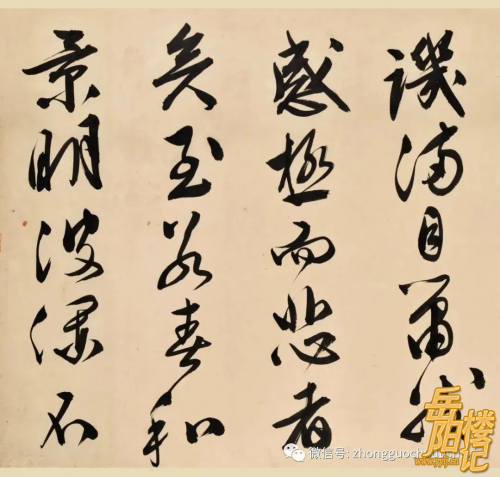 讥满目萧然
感极而悲者
矣至若春和
景明波澜不
岳阳楼记
微信号: zhongguoch